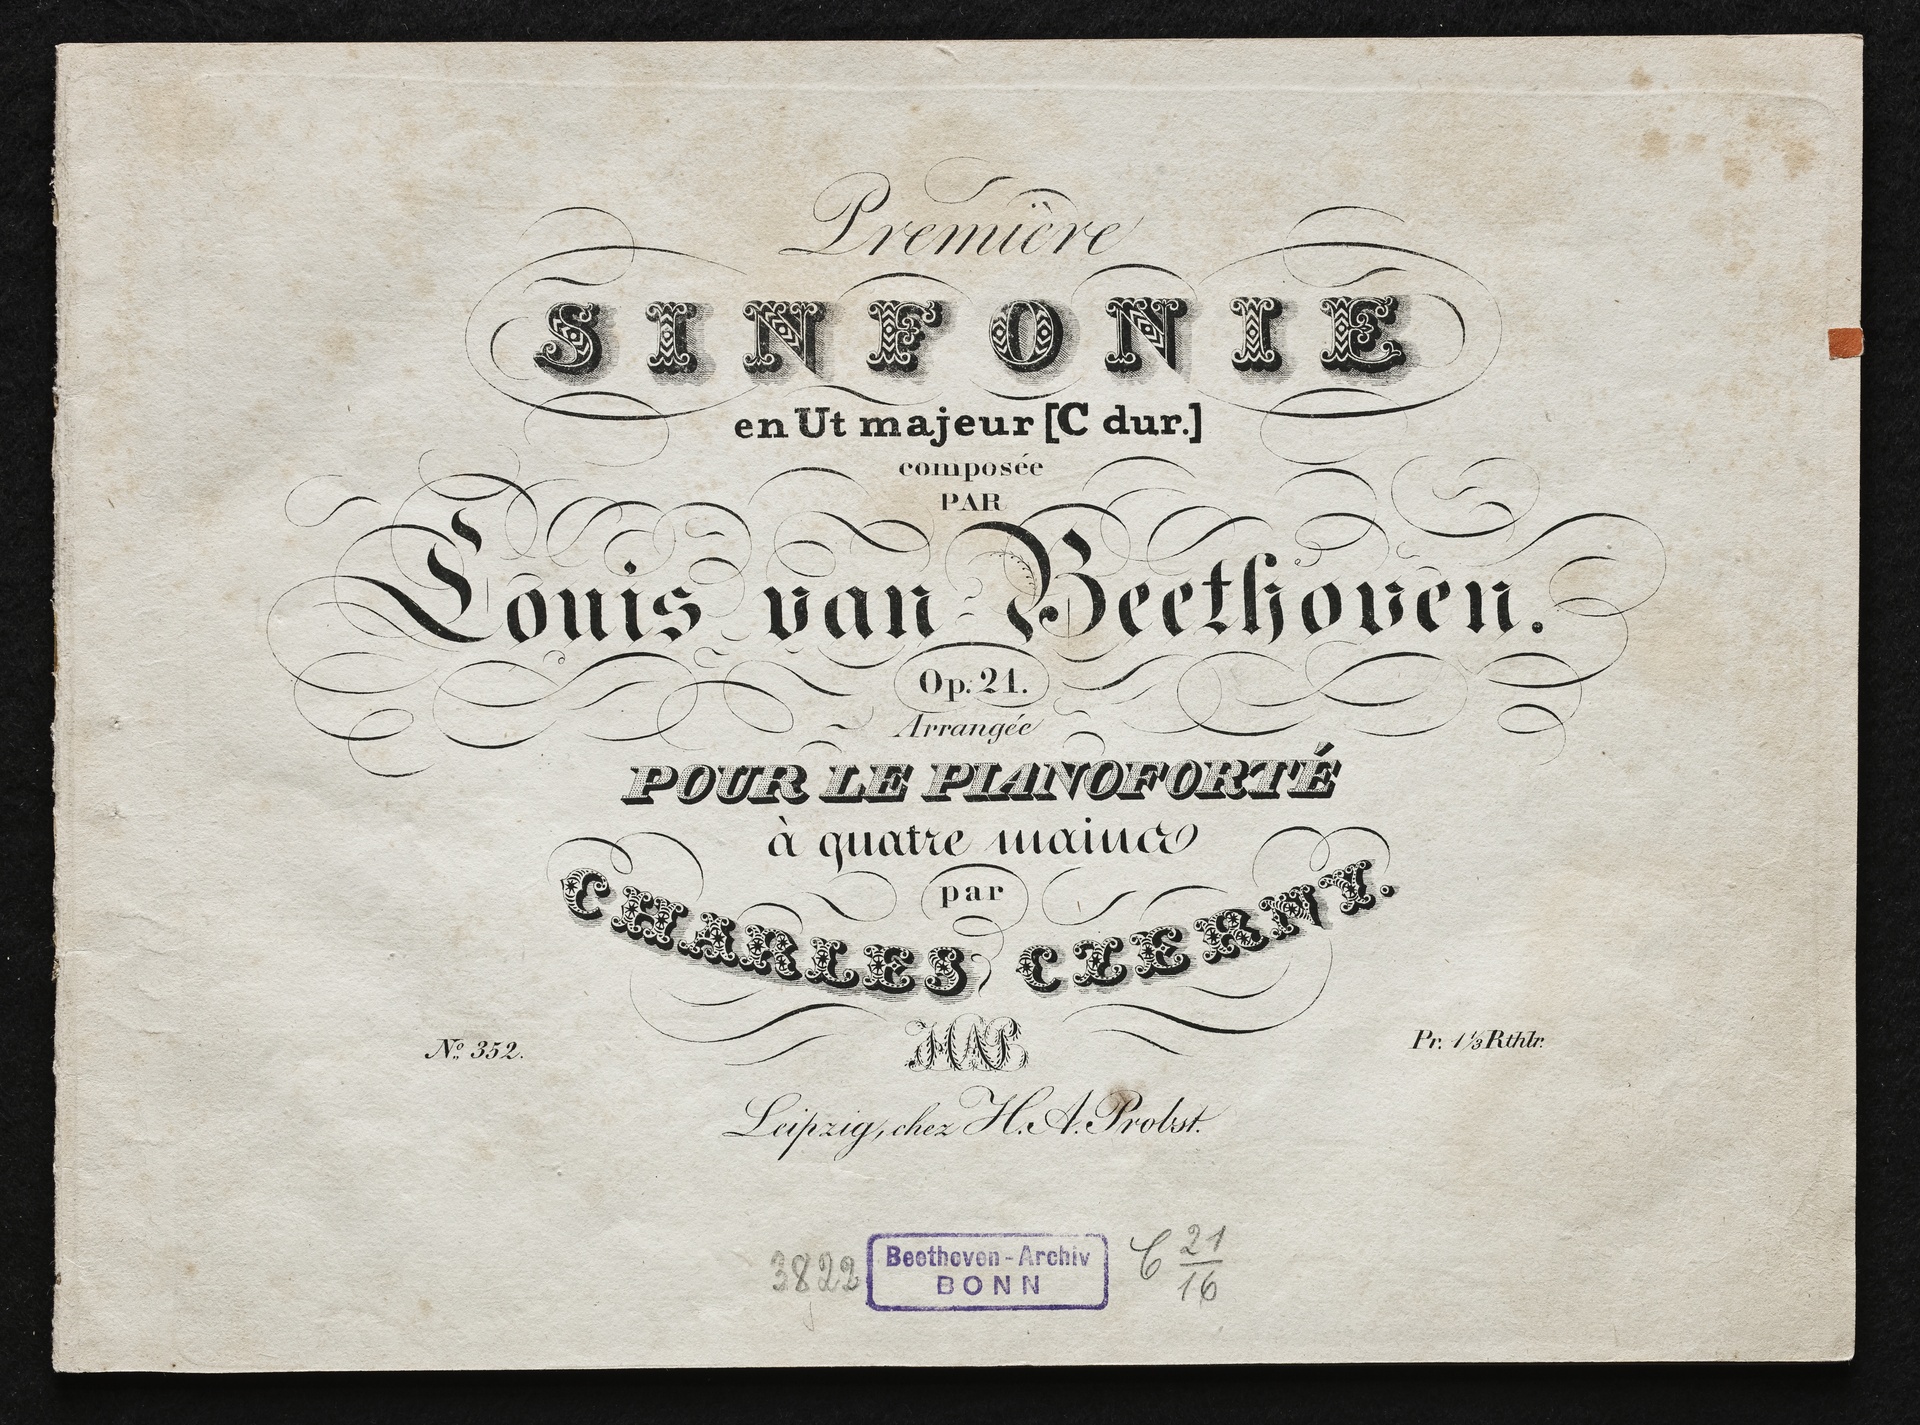 Première
SINFONIE
en Ut majeur [C dur.]
composée
PAR
Louis van Beethoven.
Op. 21.
Arrangée
POUR LE PIANOFORTÉ
à quatre mains
par
CHARLES CZERNY.
HAP
No. 352.
Pr. 1 1/3 Rthlr.
Leipzig, chez H. A. Probst.
3822
Beethoven-Archiv
BONN
C 21/16